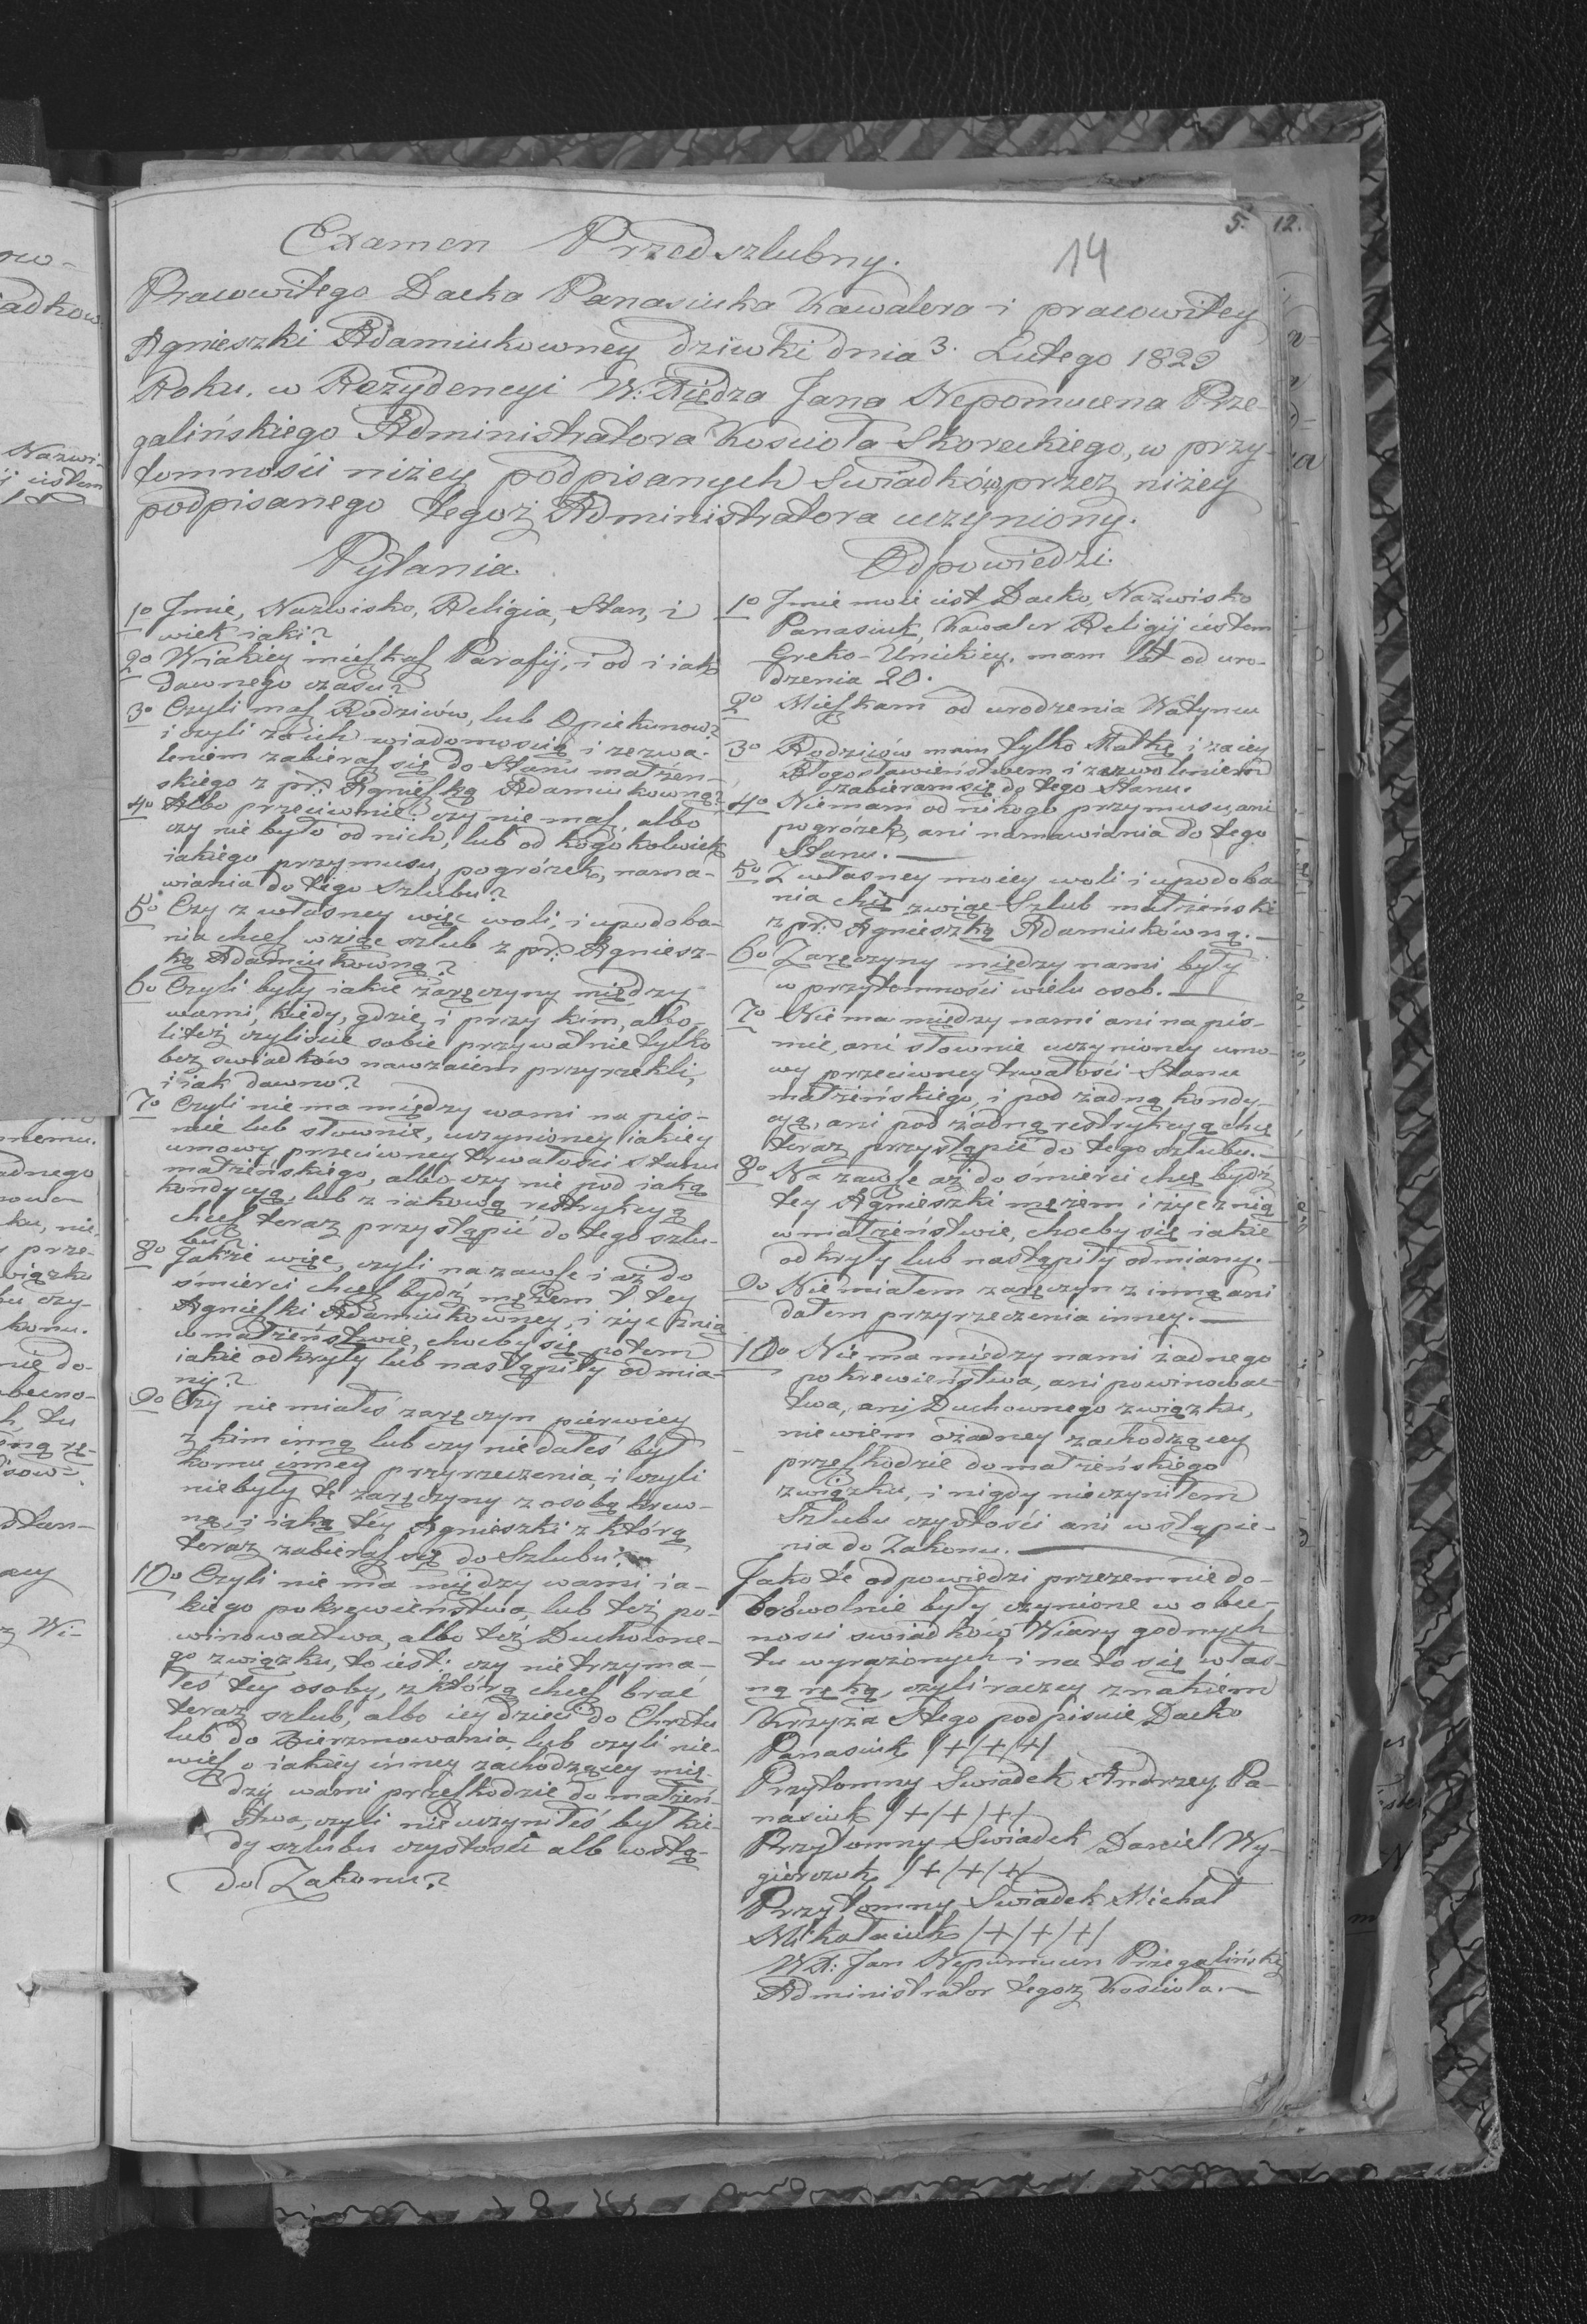 5. 12.
14
Examen Przedszlubny.
Pracowitego Dacka Panasiuka Kawalera i pracowitey
Agnieszki Adamiukowney dziwki dnia 3. Lutego 1829
Roku. w Rezydencyi W: Xiędza Jana Nepomucena Prze-
galińskiego Administratora Kościoła Skoreckiego, w przy-
tomności niżey podpisanych Swiadków, przez niżey
podpisanego tegoż Administratora uczyniony.
Pytania.
1o Jmie, Nazwisko, Religia, Stan, i
wiek iaki?
2o W iakiey mieszkasz Parafij, i od i iak
dawnego czasu?
3o Czyli masz Rodziców, lub Opiekunow?
i czyli za ich wiadomością i zezwa-
leniem zabierasz się do Stanu małżeń-
skiego z pr: Agnieszką Adamiukowną?
4o Albo przeciwnie? czy nie masz, albo
czy nie było od nich, lub od kogokolwiek
iakiego przymusu, pogrózek, nama-
wiania do tego szlubu?
5o Czy z własney więc woli, i upodoba-
nia chcesz wziąć szlub z pr: Agniesz-
ką Adamiukowną?
6o Czyli były iakie zaręczyny między
wami, kiedy, gdzie, i przy kim, albo
li też czyliście sobie przywatnie tylko
bez swiadków nawzaiem przyrzekli,
i iak dawno?
7o Czyli nie ma między wami na pis-
mie lub słownie, uczynioney iakiey
umowy przeciwney trwałości stanu
małżeńskiego, albo czy nie pod iaką
kondycyą, lub z iakową restrykcyą
chcesz teraz przystąpić do tego szlu-
bu?
8o Jakże więc, czyli na zawsze i aż do
śmierci chcesz bydź mężem t tey
Agnieszki Adamiukowney, i żyć z nią
w małżeństwie, choćby się potem
iakie odkryły lub nastąpiły odmia-
ny?
9o Czy nie miałeś zaręczyn pierwiey
z kim inną lub czy nie dałeś był
komu inney przyrzeczenia, i czyli
nie były te zaręczyny z osobą krew-
ną, i iaką tey Agnieszki z którą
teraz zabierasz się do Szlubu?
10o Czyli nie ma między wami ia-
kiego pokrewieństwa, lub też po-
winowactwa, albo też Duchowne-
go związku, to iest: czy nie trzyma-
łeś tey osoby, z którą chcesz brać
teraz szlub, albo iey dzieci do Chrztu
lub do Bierzmowania, lub czyli nie-
wiesz o iakiey inney zachodzącey mię-
dzy wami przeszkodzie do małżeń-
stwa, czyli nie uczyniłeś był kie-
dy szlubu czystości alb wstą-
do Zakonu?
Odpowiedzi.
1o Jmie moie iest Dacko, Nazwisko
Panasiuk, Kawaler Religij iestem
Greko-Unickiey, mam lat od uro-
dzenia 20.
2o Mieszkam od urodzenia Watynu
3o Rodziców mam tylko Matkę i za iey
Błogosławieństwem i zezwoleniem
zabieram się do tego Stanu.
4o Nie mam od nikogo przymusu, ani
pogrózek, ani namawiania do tego
Stanu.
5o Z własney moiey woli i upodoba-
nia chcę zwiąc Szlub małżeński
z pr: Agnieszką Adamiukówną.
6o Zaręczyny między nami były
w przytomności wielu osob.
7o Nie ma między nami ani na piś-
mie, ani słownie uczynioney umo-
wy przeciwney trwałości Stanu
małżeńskiego, i pod żadną kondy-
cyą, ani pod żadną restrykcyą chcę
teraz przystąpić do tego szlubu.
8o Na zawsze aż do śmierci chcę bydź
tey Agnieszki mężem i żyć z nią
w małżeństwie, choćby się iakie
odkryły lub nastąpiły odmiany.
9o Nie miałem zaręczyn z inną ani
dałem przyrzeczenia inney.
10o Nie ma między nami żadnego
pokrewieństwa, ani powinowac-
twa, ani Duchownego związku,
nie wiem o żadney zachodzącey
przeszkodzie do małżeńskiego
związku, i nigdy nie czyniłem
Szlubu czystości ani wstąpie-
nia do Zakonu.
Jako te odpowiedzi przezemnie do-
browolnie były czynione w obec-
ności swiadków Wiary godnych
tu wyrażonych i na to się włas-
ną ręką, czyli raczey znakiem
Krzyża Stego podpisuie Dacko
Panasiuk /+/+/+/
Przytomny Swiadek Andrzey Pa-
nasiuk /+/+/+/
Przytomny Swiadek Daniel Wy-
gierczuk /+/+/+/
Przytomny Swiadek Michał
Mikołaiuk /+/+/+/
WX: Jan Nepomucen Przegaliński
Administrator tegoż Kościoła.